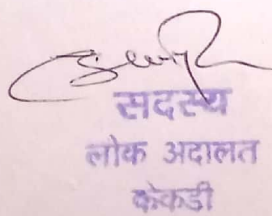 सदस्य
लोक अदालत
केकडी